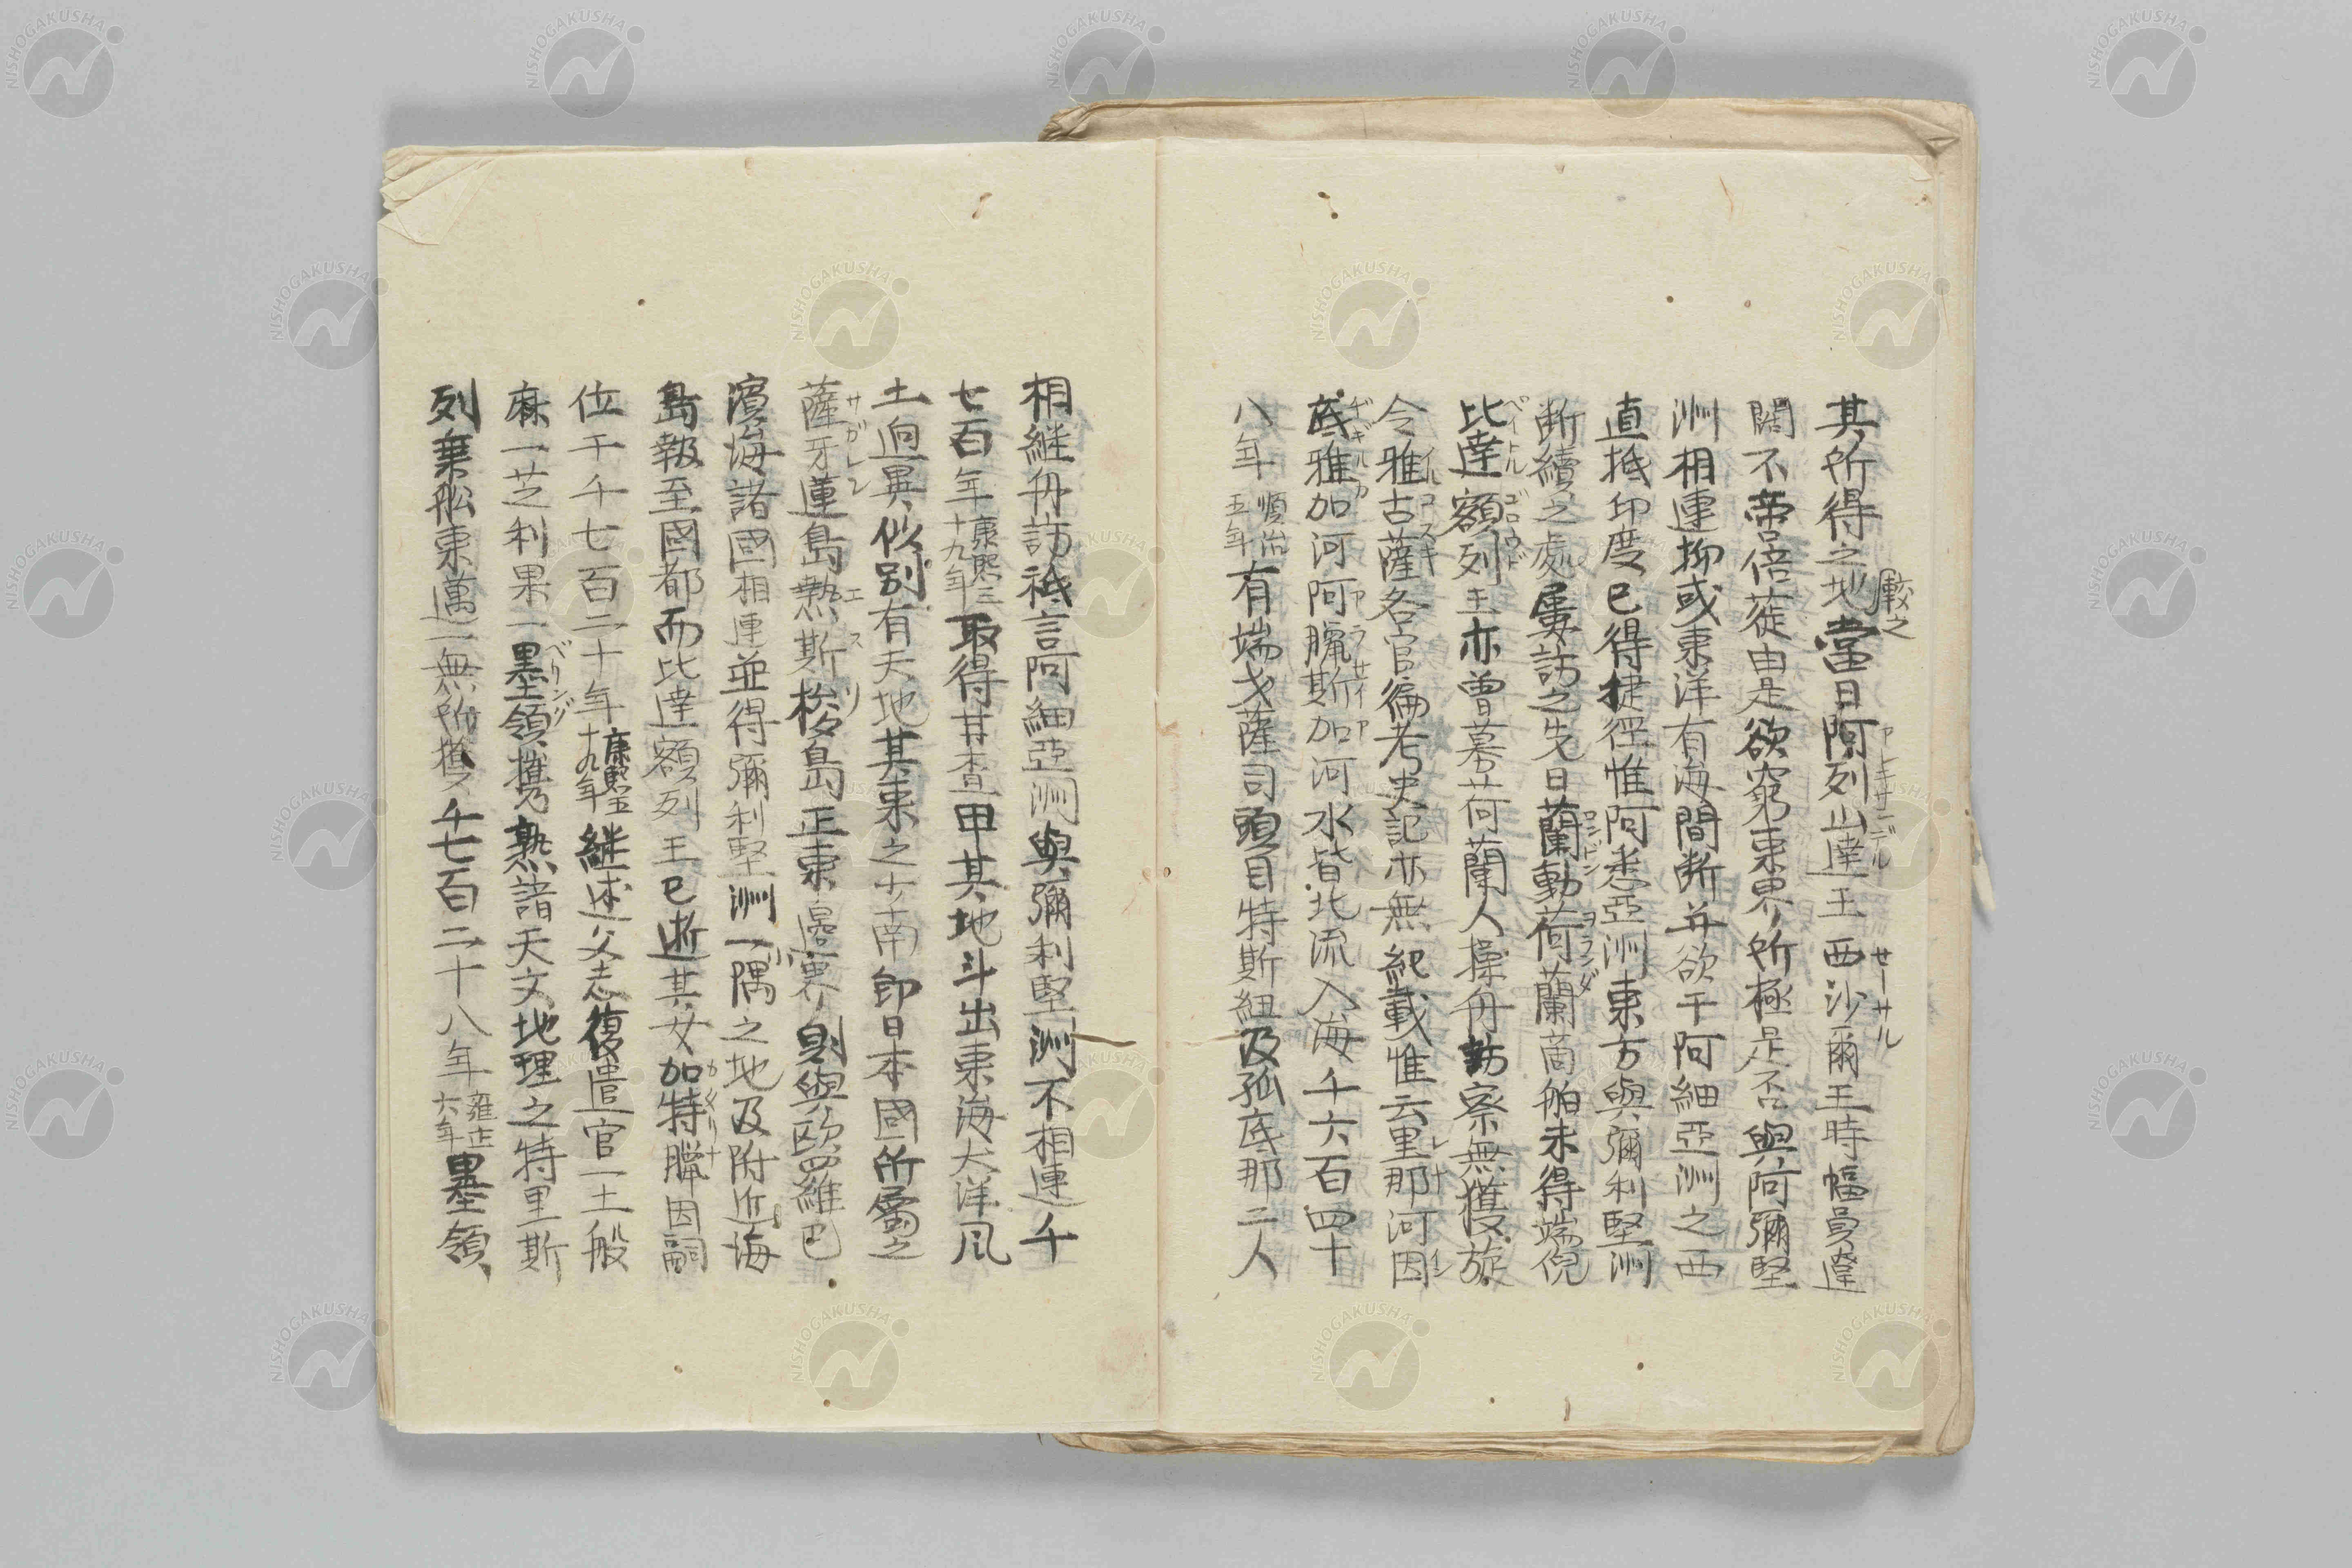 其所得之地較之當日阿列山達王西沙爾王時幅員遼
闊不啻倍蓰由是欲窮東界所極是否與阿彌堅
洲相連抑或東洋有海間斷并欲于阿細亞洲之西
直抵印度已得捷徑惟阿悉亞洲東方與彌利堅洲
断續之處屢訪之先日蘭動荷蘭啇舶未得端倪
比達額列王亦曾慕荷蘭人操舟訪察無獲旋
令雅古薩各官徧考史記亦無紀載惟云里那河因
底雅加河阿臘斯加河水皆北流入海千六百四十
八年順治五年有端戈薩司頭目特斯紐及孤底那二人
相継舟訪祗言阿細亞洲與彌利堅洲不相連千
七百年康熙三十九年取得甘查甲其地斗出東海大洋風
土逈異似别有天地其東之少南卽日本國所屬之
薩牙蓮島𤍠斯梭島正東邊界則與歐羅巴
濵海諸國相連並得彌利堅洲一隅之地及附近海
島報至國都而比達額列王已逝其女加特臘因嗣
位千千七百二十年康熙五十九年継述父志復遣官一士般
麻一芝利果一墨領携乃熟諸天文地理之特里斯
列乗舩東邁一無所獲千七百二十八年雍正六年墨領